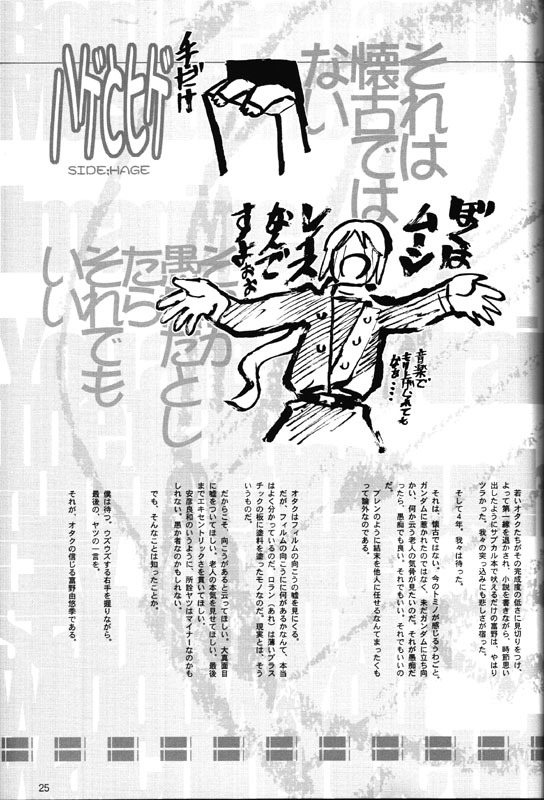 ハゲとヒゲ
SIDE:HAGE
手だけ
それは
懐古では
ない
それが
愚痴だとし
たら
それでも
いい
ぼくは
ムーン
レィス
なんで
すよぉぉ
音楽で
もり上げられても
なぁ…
若いオタクたちがその完成度の低さに見切りをつけ、
よって第一線を退かされ、小説を書きながら、時節思い
出したようにサブカル本で吠えるだけの富野は、やはり
ツラかった。我々の突っ込みにも悲しさが宿った。
そして4年。我々は待った。
それは、懐古ではない。今のトミノが感じるうわごと、
ガンダムに惹かれたのではなく、未だガンダムに立ち向
かい、何か云う老人の気骨が見たいのだ。それが愚痴だ
ったら、愚痴でも良い。それでもいい、それでもいいの
だ。
ブレンのように結末を他人に任せるなんてまったくも
って論外なのである。
オタクはフィルムの向こうの嘘を見にくる。
だが、フィルムの向こうに何があるかなんて、本当
はよく分かっているのだ。ロラン（あれ）は薄いプラス
チックの板に塗料を塗ったモノなのだ。現実とは、そう
いうものだ。
だからこそ、向こうがあると云ってほしい。大真面目
に嘘をついてほしい。老人の本気を見せてほしい。最後
までエキセントリックさを貫いてほしい。
安彦良和のいうように、所詮ヤツはマイナーなのかも
しれない。愚か者なのかもしれない。
でも、そんなことは知ったことか。
僕は待つ。ウズウズする右手を握りながら。
最後の、ヤツの一言を。
それが、オタクの信じる富野由悠季である。
25